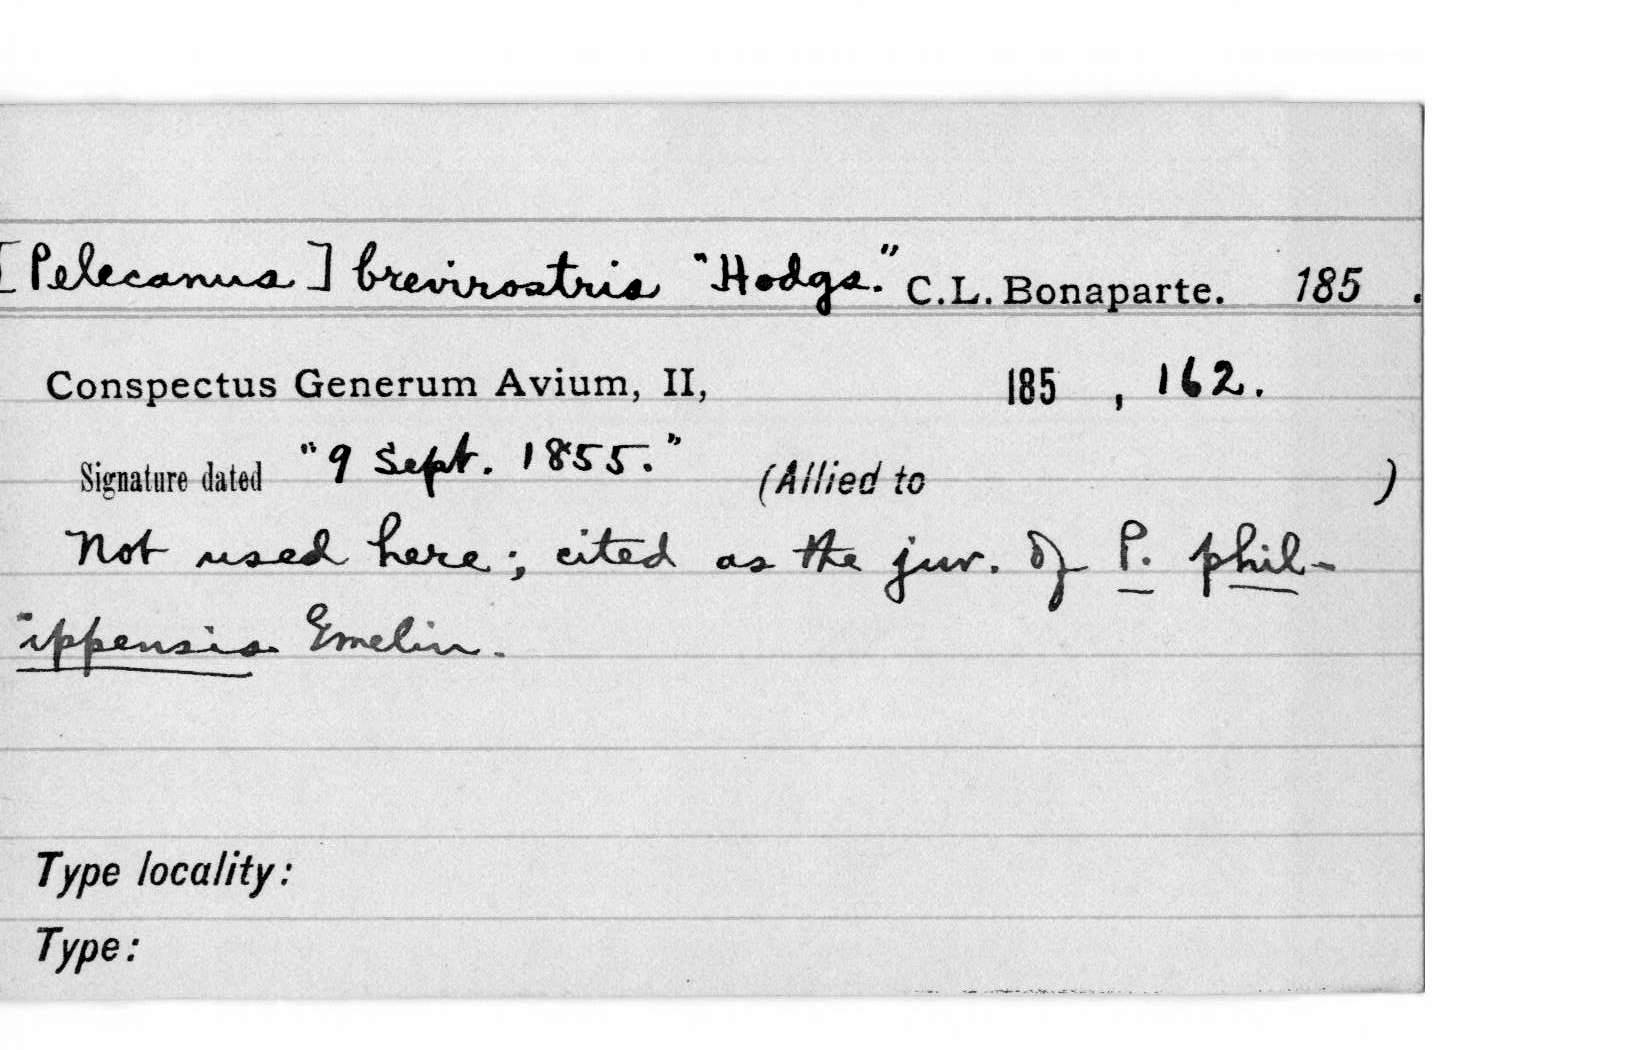 [Pelecanus] brevirostris "Hodgs." C.L. Bonaparte. 185 .
Conspectus Generum Avium, II, 185 , 162.
Signature dated "9 Sept. 1855." (Allied to )
Not used here; cited as the juv. of P. phil-
ippensis Gmelin.
Type locality:
Type: